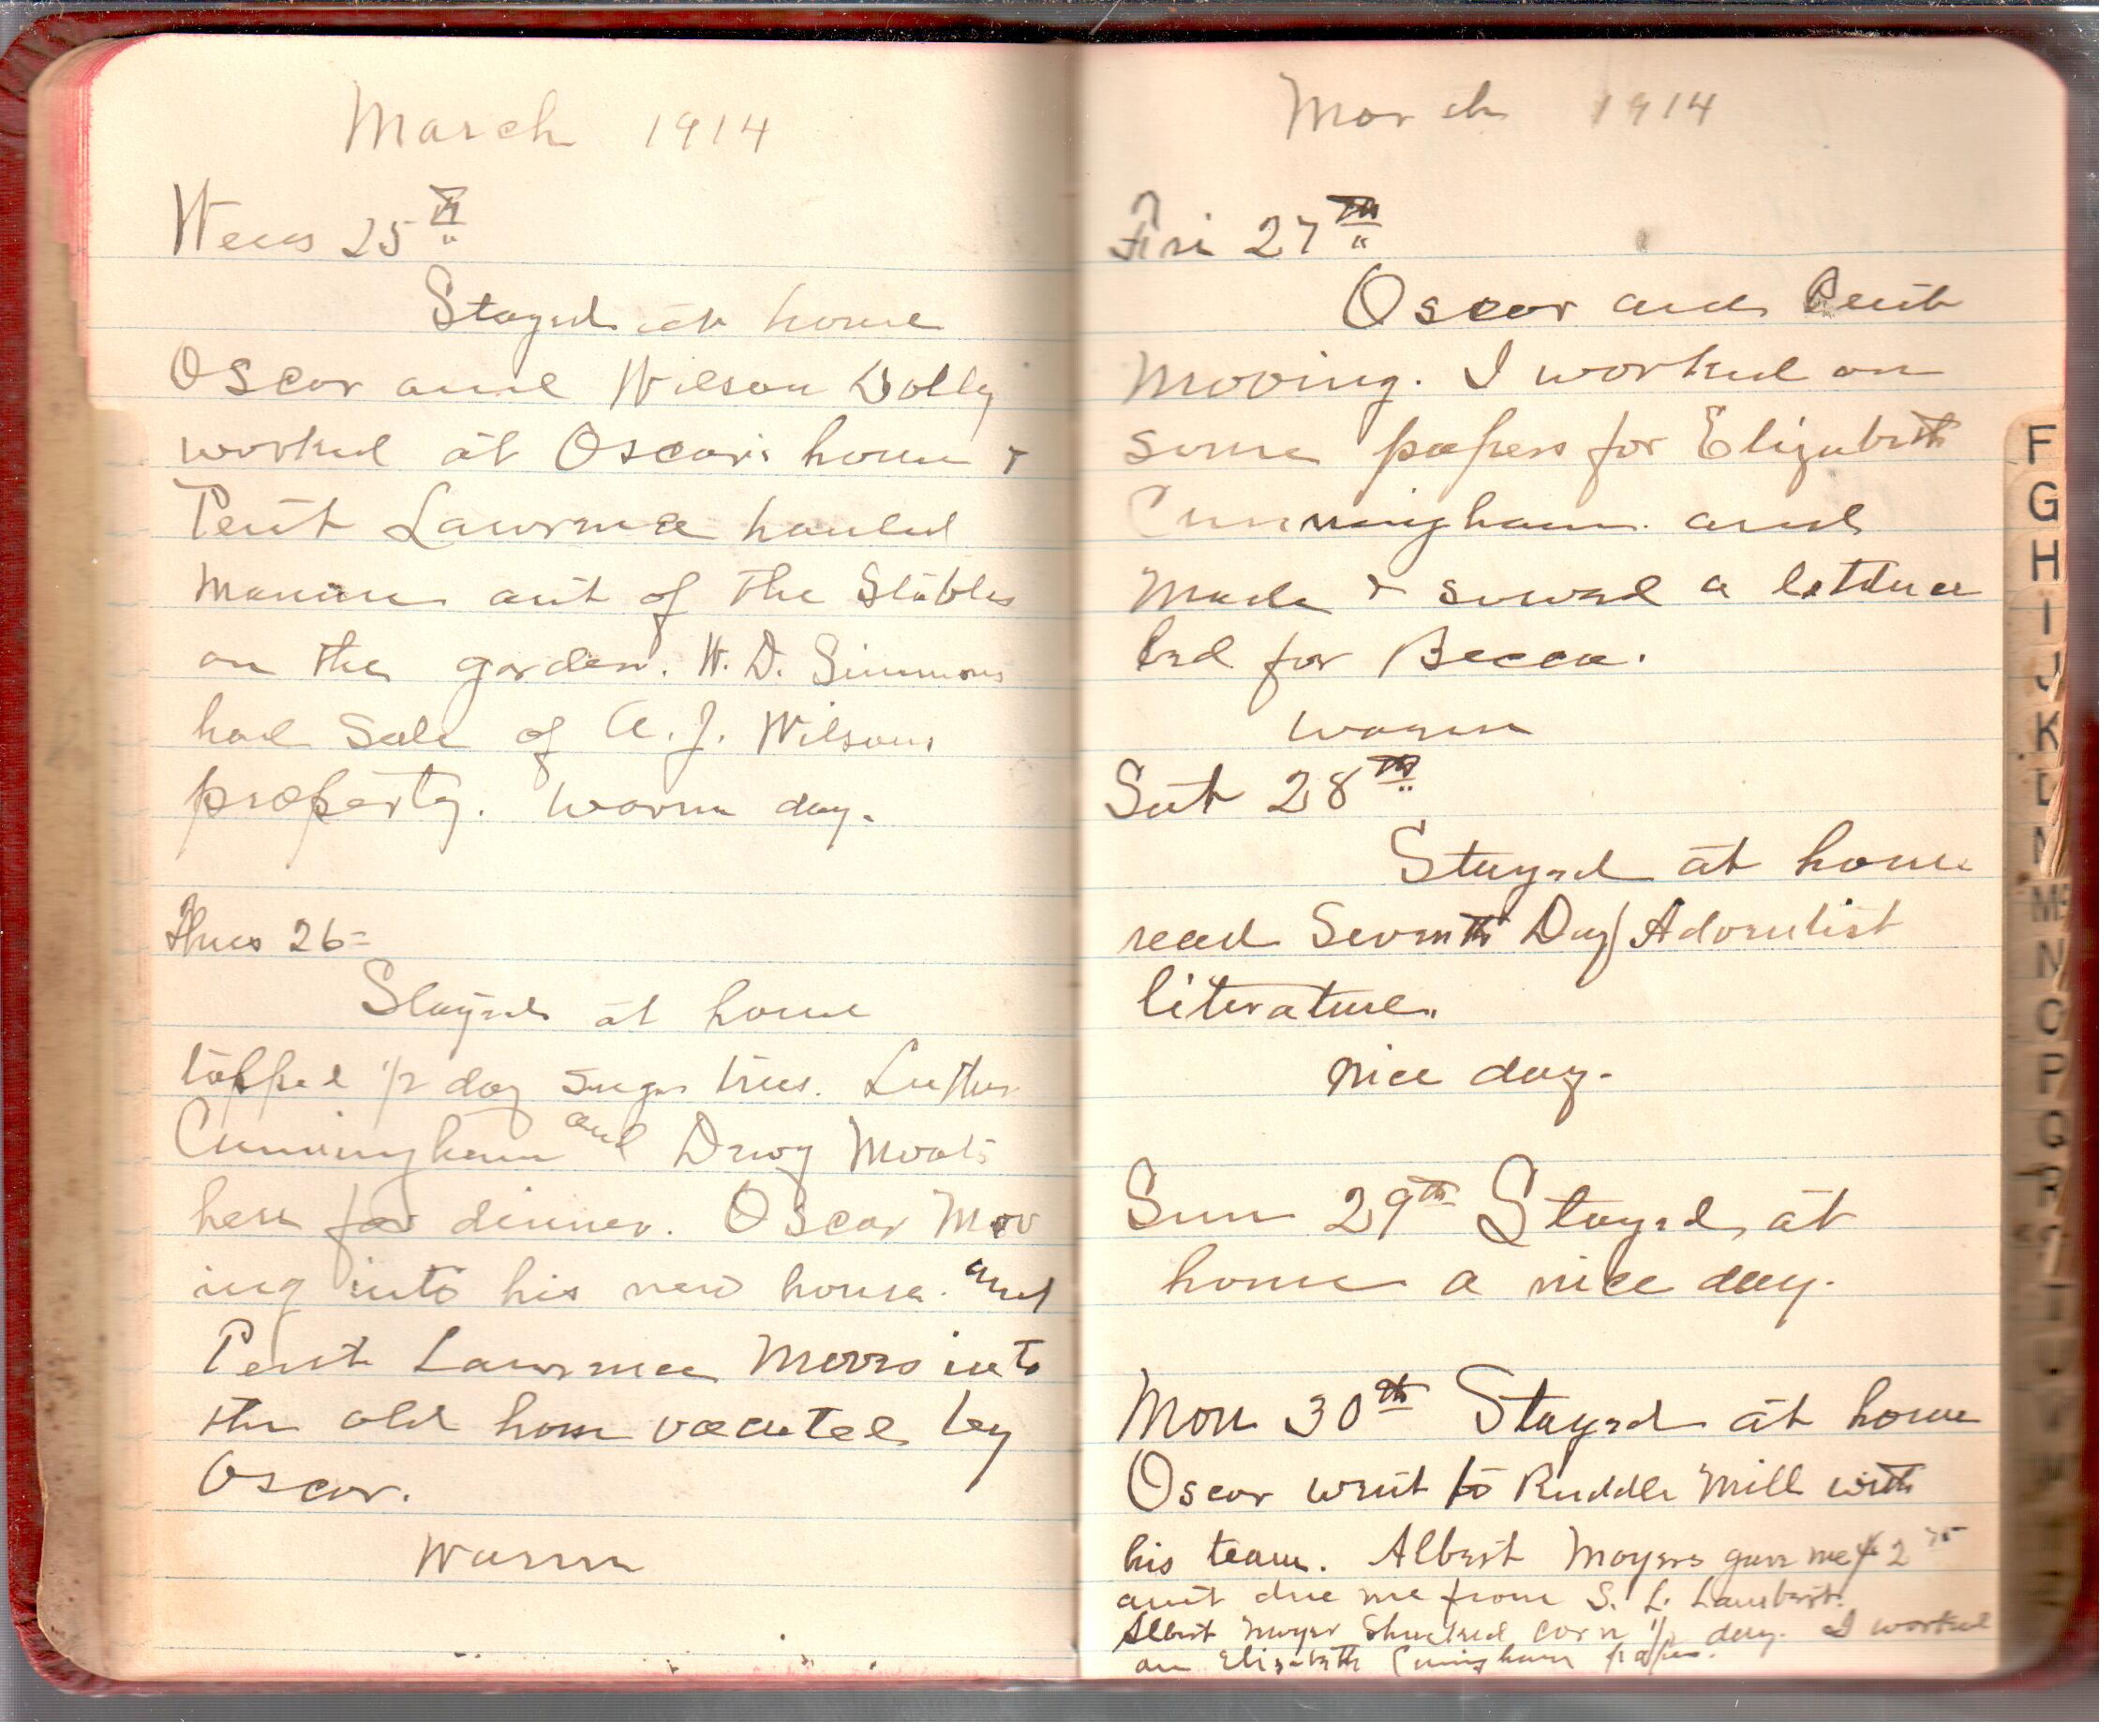 March 1914
Weds 25th
Stayed at home
Oscar and Wilson Dolly
worked at Oscar's house &
Pent Lawrence hauled
manure out of the Stables
on the garden. W. D. Simmons
had Sale of A. J. Wilsons
property. Warm day.
Thurs 26=
Stayed at home
topped 1/2 day sugar trees. Luther
Cunningham and Moats
here for dinner. Oscar Mov
ing into his new house. and
Pent Lawrence Moves into
the old house vacated by
Oscar.
Warm
March 1914
Fri 27th
Oscar and Pent
Moving. I worked on
some papers for Elizabeth
Cunningham. and
Made & sowed a lettuce
bed for Becca.
warm
Sat 28th
Stayed at home
read Seventh Day Adventist
literature.
nice day.
Sun 29th Stayed at
home a nice day.
Mon 30th Stayed at home
Oscar went to Ruddle Mill with
his team. Albert Moyers gave me $2 75
amt due me from S. L. Lambert.
Albert Moyer Shucked corn 1/2 day. I worked
on Elizabeth Cuningham papers.
F
G
H
I
J
K
L
M
Mc
N
O
P
Q
R